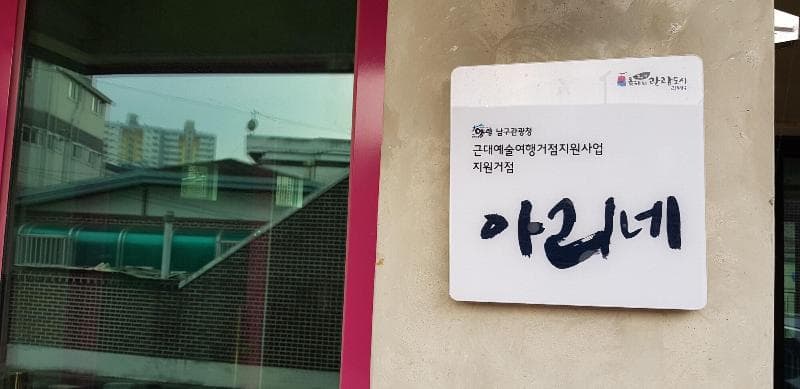 남구관광청
근대예술여행거점지원사업
지원거점
아리네